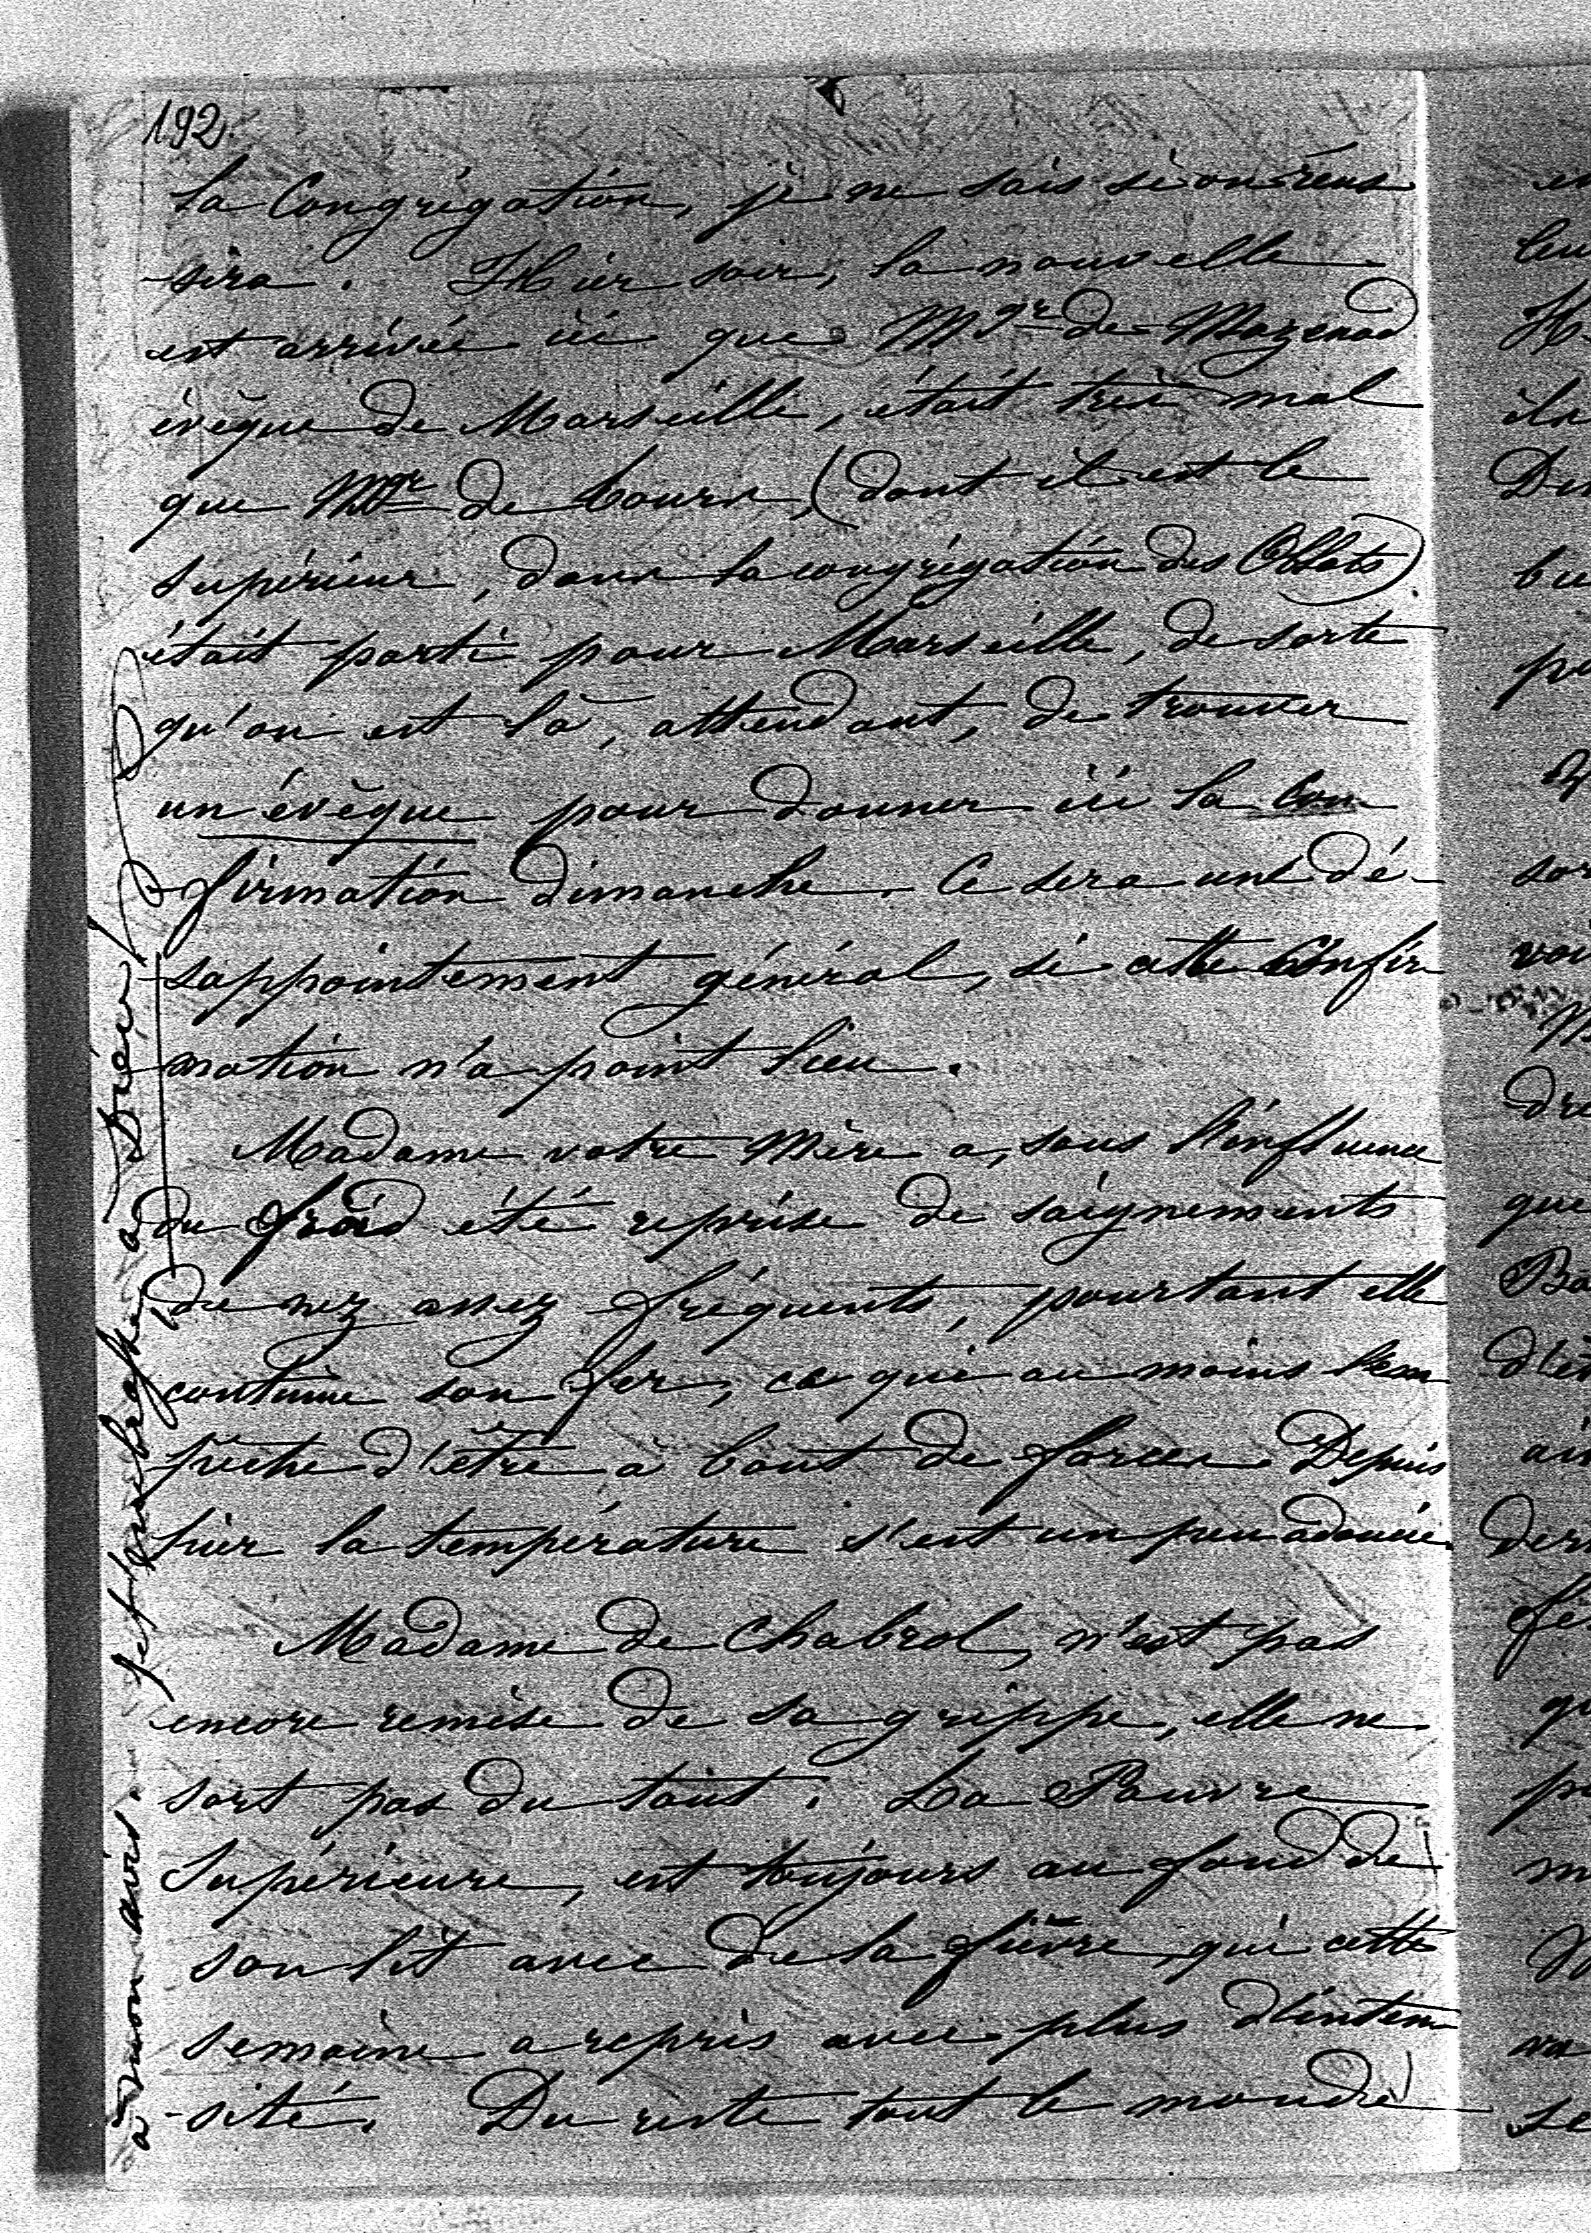 192
la Congrégation, je ne sais si on réus
sira. Hier soir, la nouvelle
est arrivée ici que Mgr de Mazenod
évêque de Marseille, était très mal
que Mgr de Tours, (dont il est le
supérieur, dans la congrégation des Oblats)
était parti pour Marseille, de sorte
qu'on est là, attendant, de trouver
un évêque pour donner ici la Con
firmation dimanche. Ce sera un dé-
sappointement général, si cette Confir
mation n'a point lieu.
Madame votre Mère a, sous l'influence
du froid été reprise de saignements
de nez assez fréquents, pourtant elle
continue son fer, ce qui au moins l'em
pêche d'être à bout de forces. Depuis
hier la température s'est un peu adoucie.
Madame de Chabrol, n'est pas
encore remise de sa grippe, elle ne
sort pas du tout. La Pauvre
Supérieure, est toujours au fond de
son lit avec de la fièvre, qui cette
semaine a repris avec plus d'inten
-sité. Du reste tout le monde
à mon avis. à Dieu!